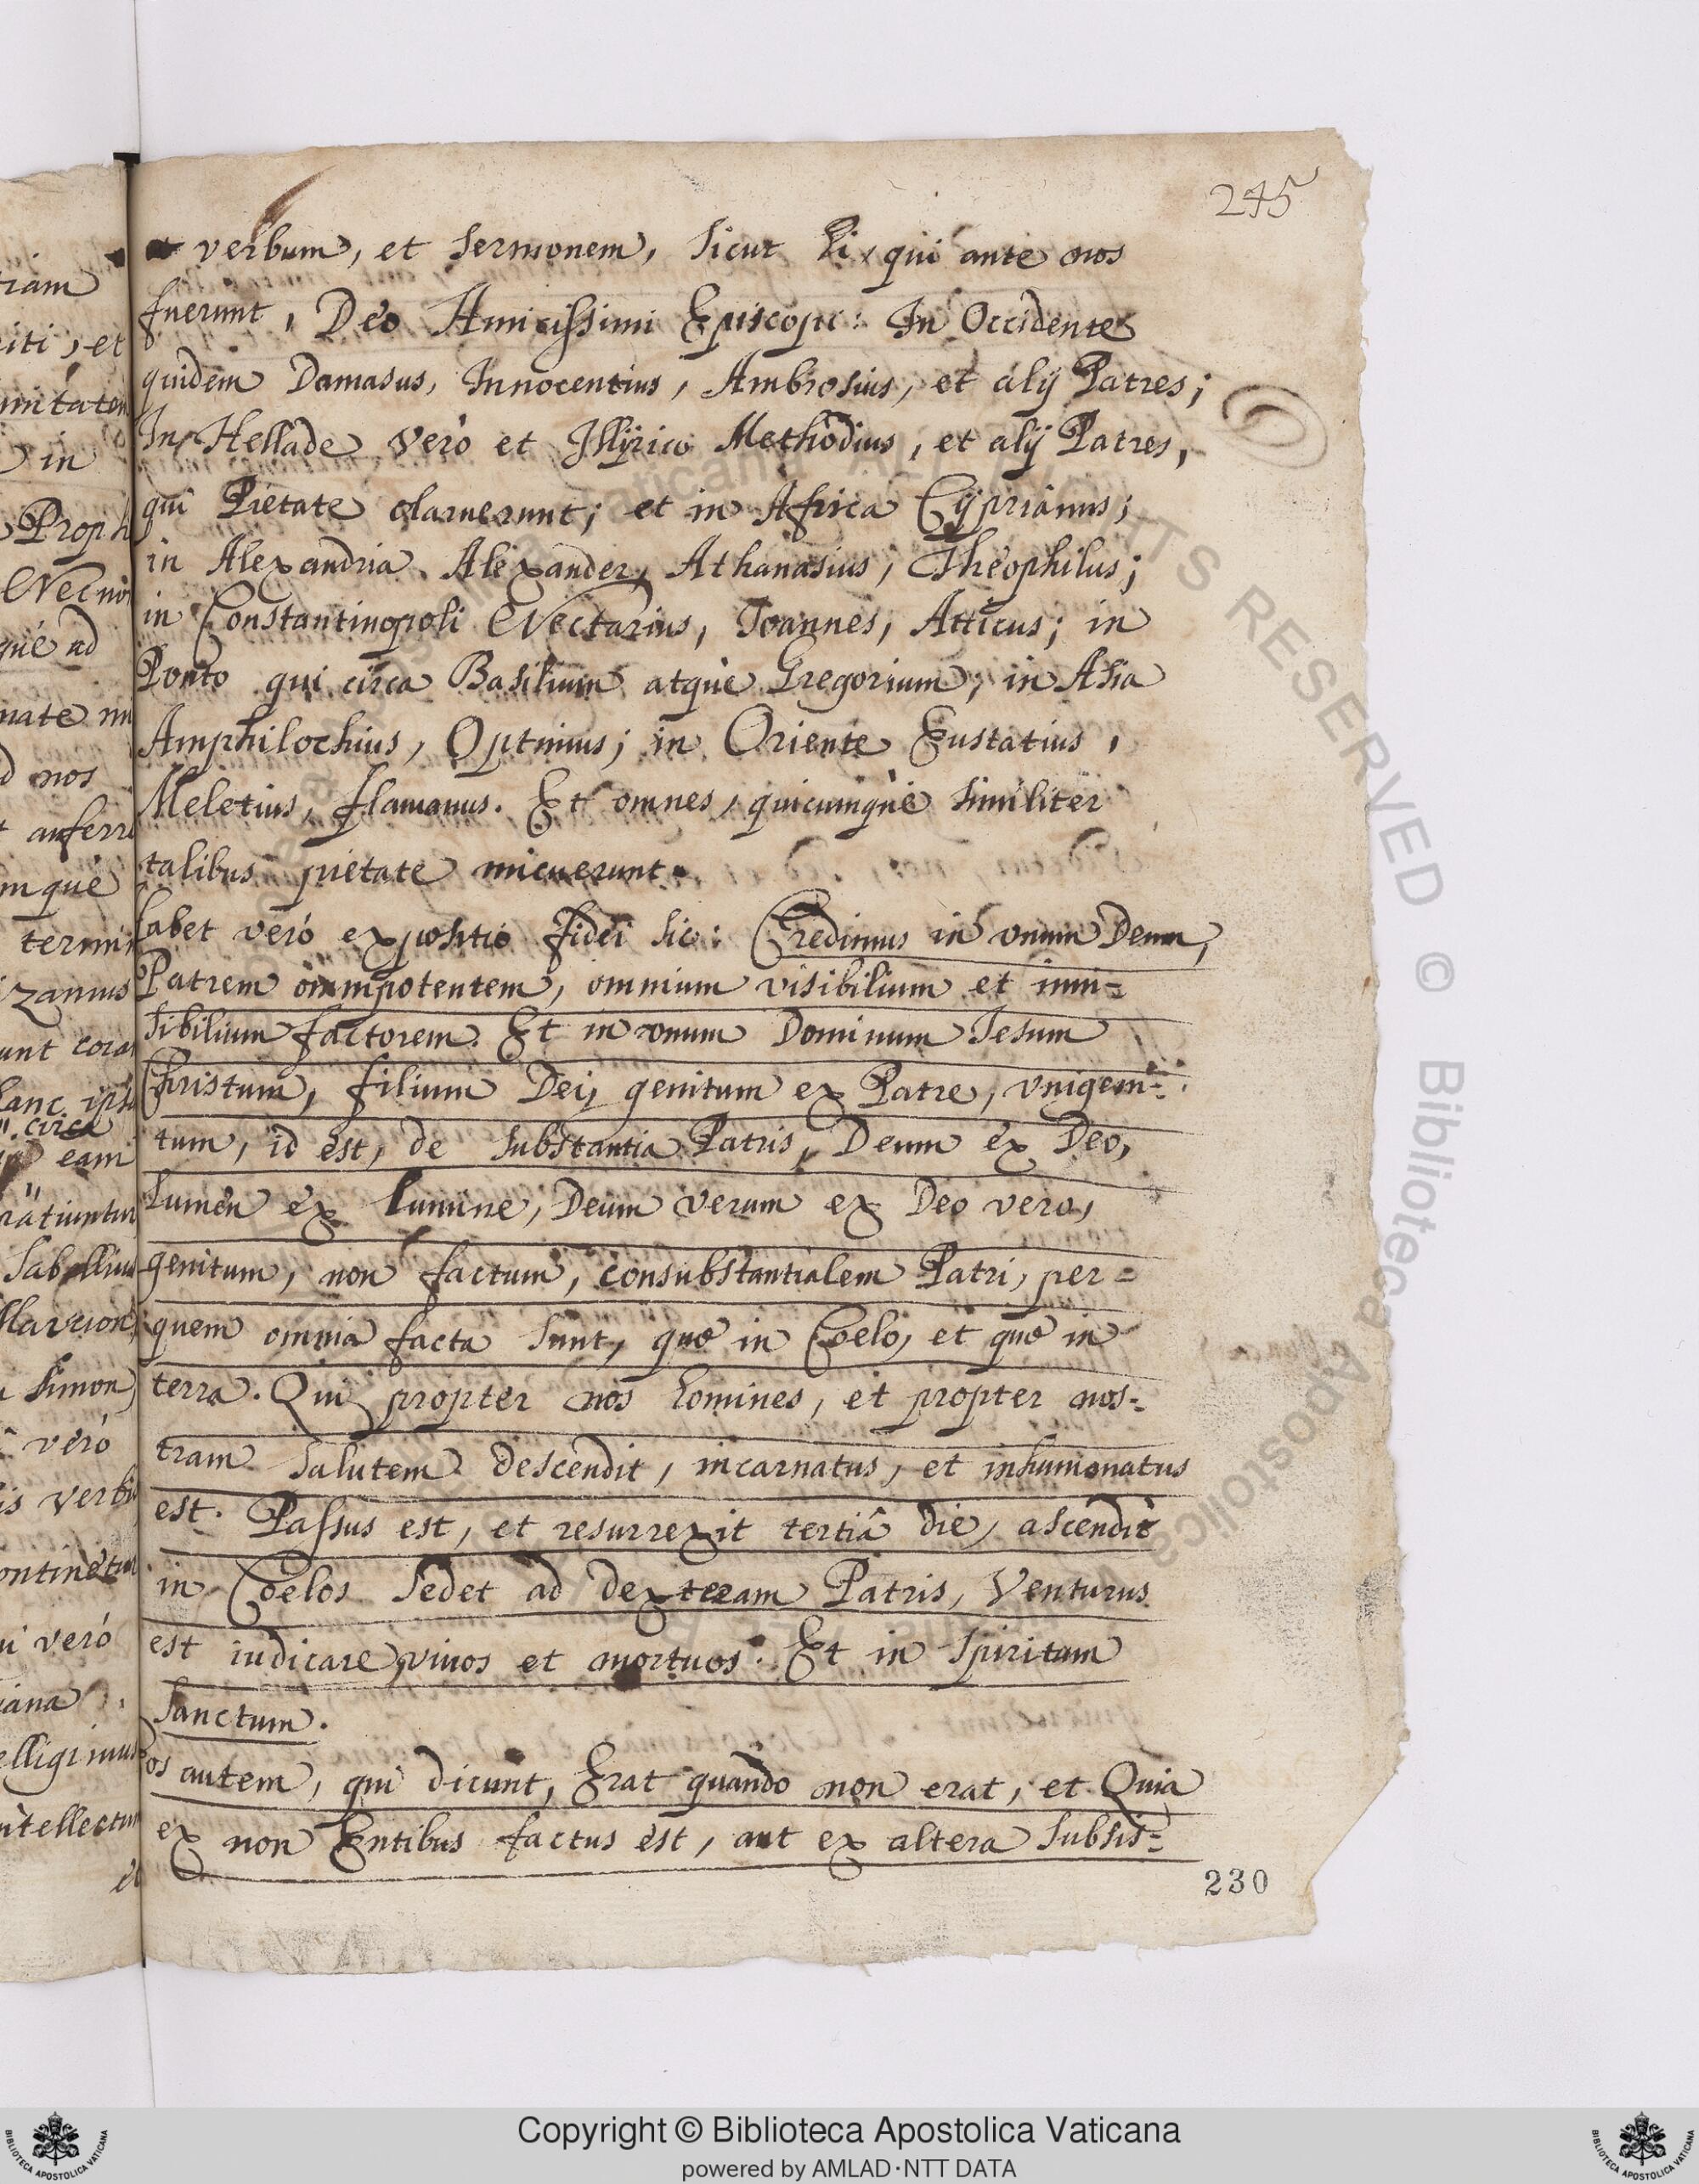 245
et verbum, et sermonem, sicut hi, qui ante nos
fuerunt, Deo Amicissimi Episcopi: In Occidente
quidem Damasus, Innocentius, Ambrosius, et alij Patres;
In Hellade verò et Illÿrico Methodius, et alij Patres,
qui Pietate claruerunt; et in Africa Cÿprianus;
in Alexandria Alexander, Athanasius, Theophilus;
in Constantinopoli Nectarius, Joannes, Atticus; in
Ponto qui circa Basilium atque Gregorium; in Asia
Amphilochius, Optimus; in Oriente Eustatius,
Meletius, flauianus. Et omnes, quicumque similiter
talibus pietate micuerunt.
habet verò expositio fidei sic: Credimus in vnum Deum,
Patrem omnipotentem, omnium visibilium et inui=
sibilium factorem. Et in vnum Dominum Jesum
Christum, filium Dei, genitum ex Patre, vnigeni=
tum, id est, de substantia Patris, Deum ex Deo,
lumen ex lumine, Deum verum ex Deo vero,
genitum, non factum, consubstantialem Patri, per=
quem omnia facta sunt, quæ in Coelo, et quæ in
terra. Qui propter nos homines, et propter nos=
tram salutem descendit, incarnatus, et inhumanatus
est. Passus est, et resurrexit tertiâ die, ascendit
in Coelos sedet ad dexteram Patris, Venturus
est iudicare viuos et mortuos. Et in Spiritum
Sanctum.
os autem, qui dicunt, Erat quando non erat, et Quia
ex non Entibus factus est, aut ex altera subsis=
230
Copyright © Biblioteca Apostolica Vaticana
powered by AMLAD·NTT DATA